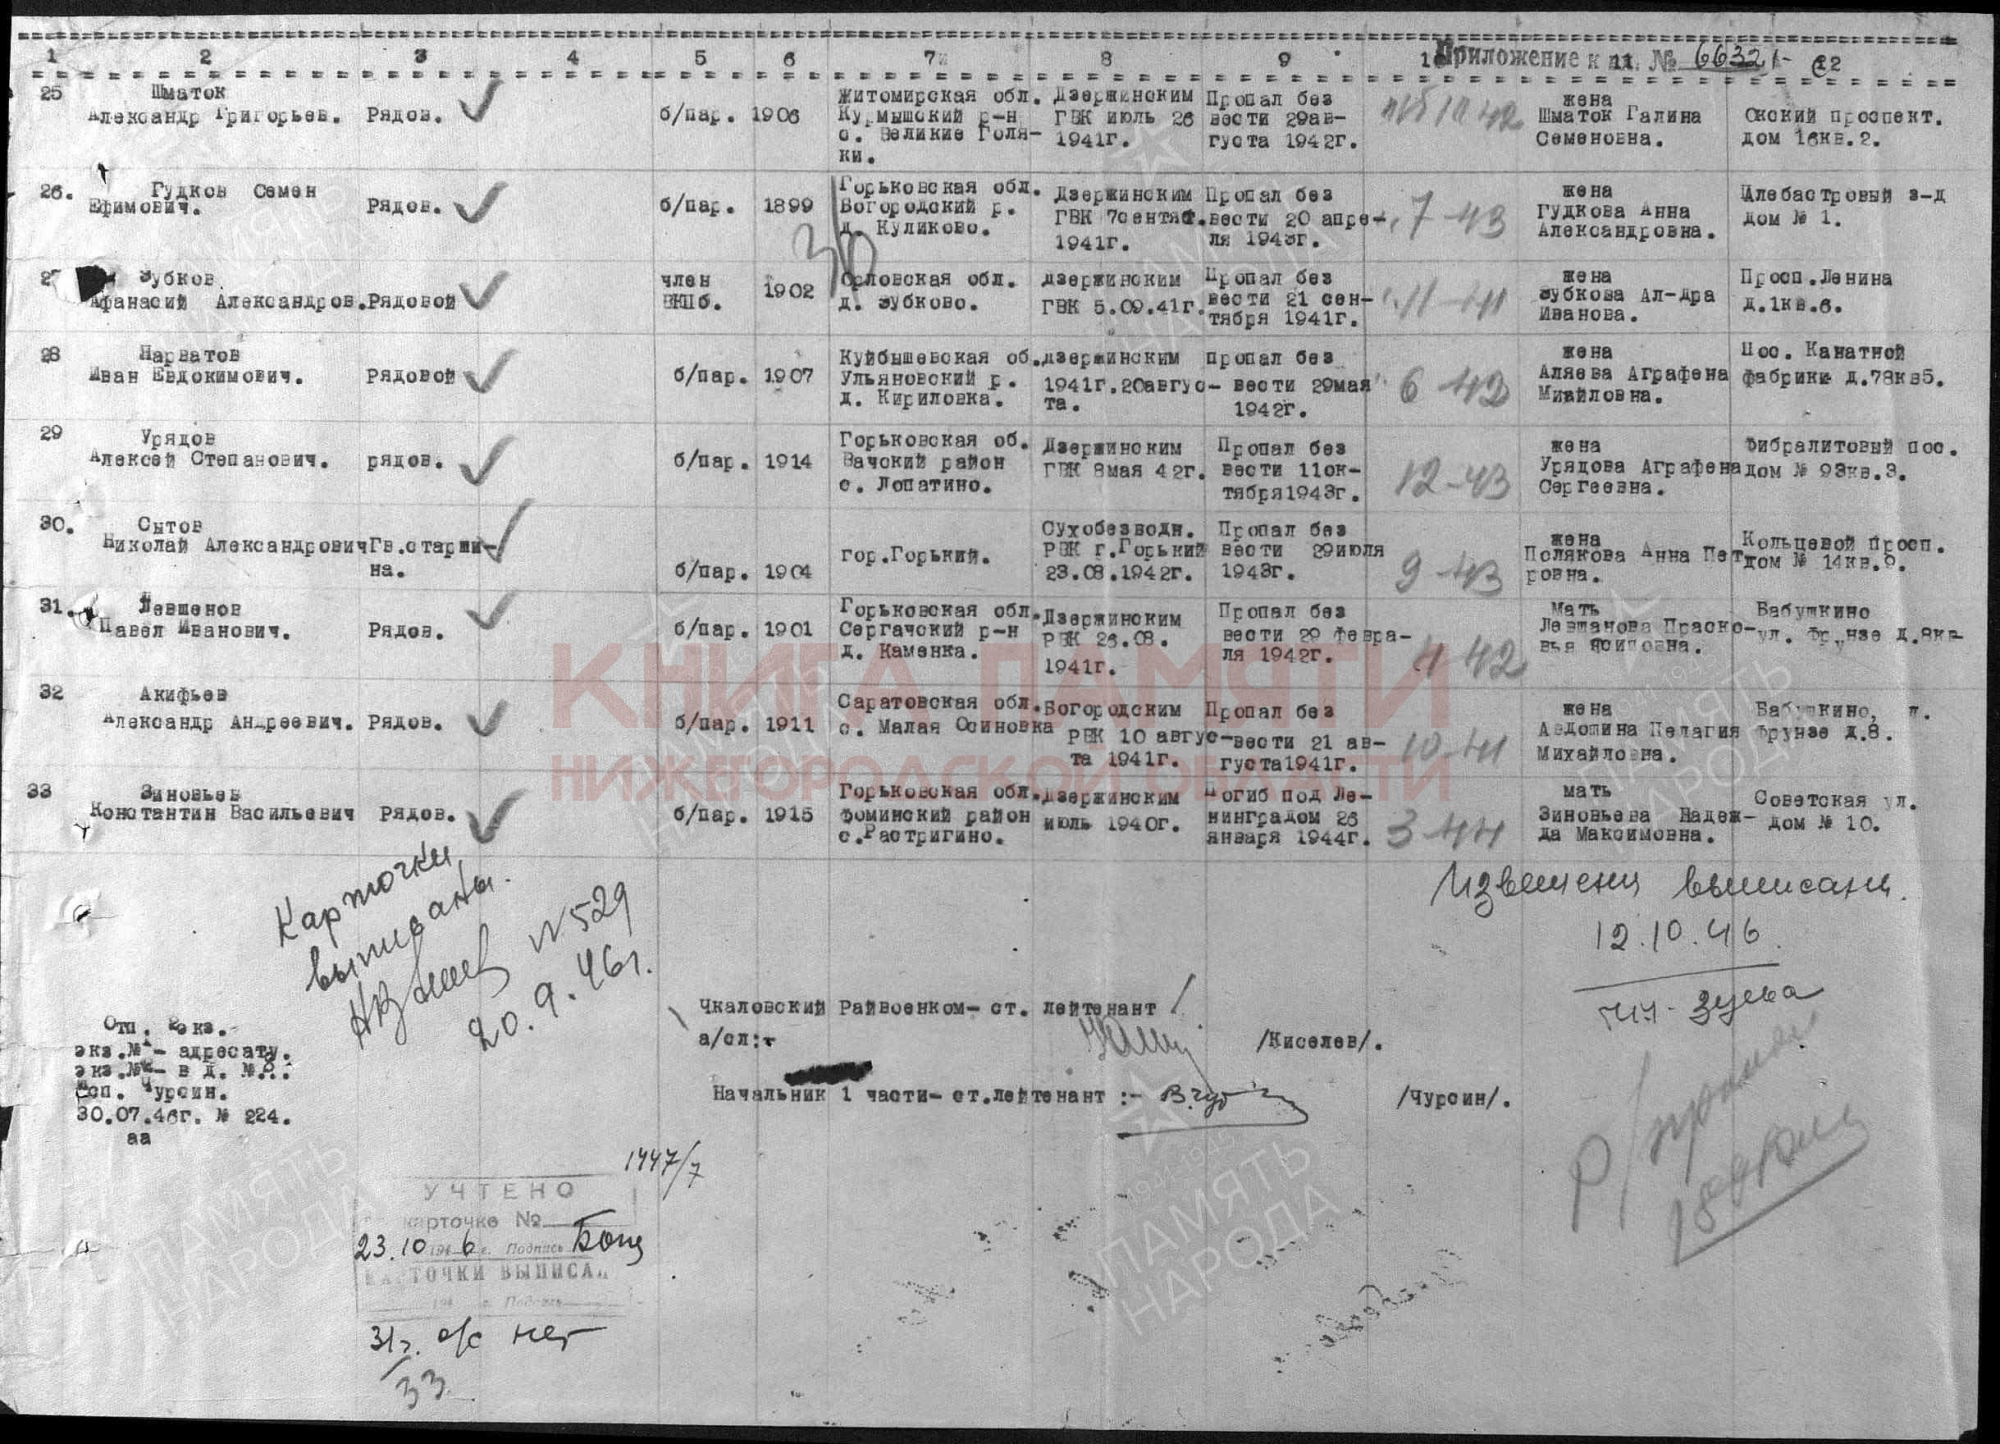 1 2 3 4 5 6 7 8 9 10 11 12
Приложение к вх. № 6632
25 Шматок
Александр Григорьев. Рядов. б/пар. 1906
Житомирская обл.
Курмышский р-н
с. Великие Голя-
ки.
Дзержинским
ГВК июль 26
1941г.
Пропал без
вести 29ав-
густа 1942г.
жена
Шматок Галина
Семеновна.
Окский проспект.
дом 16кв.2.
26. Гудков Семен
Ефимович. Рядов. б/пар. 1899
Горьковская обл.
Богородский р.
д. Куликово.
Дзержинским
ГВК 7сентяб.
1941г.
Пропал без
вести 20 апре-
ля 1943г.
7-43
жена
Гудкова Анна
Александровна.
Алебастровый з-д
дом № 1.
27 Зубков
Афанасий Александров. Рядовой
член
ВКПб.
1902
Орловская обл.
д. Зубково.
Дзержинским
ГВК 5.09.41г.
Пропал без
вести 21 сен-
тября 1941г.
11-41
жена
Зубкова Ал-дра
Иванова.
Просп.Ленина
д.1кв.6.
28 Нарватов
Иван Евдокимович. Рядовой б/пар. 1907
Куйбышевская об.
Ульяновский р.
д. Кириловка.
дзержинским
1941г.20авгус-
та.
пропал без
вести 29мая
1942г.
6-42
жена
Аляева Аграфена
Михайловна.
Пос. Канатной
фабрики д.78кв5.
29 Урядов
Алексей Степанович. рядов. б/пар. 1914
Горьковская об.
Вачский район
с. Лопатино.
Дзержинским
ГВК 8мая 42г.
Пропал без
вести 11ок-
тября1943г.
12-43
жена
Урядова Аграфена
Сергеевна.
Фибралитовый пос.
дом № 93кв.3.
30. Сытов
Николай Александрович Гв.старши-
на.
б/пар. 1904
гор.Горький.
Сухобезводн.
РВК г.Горький
23.08.1942г.
Пропал без
вести 29июля
1943г.
9-43
жена
Полякова Анна Пет
ровна.
Кольцевой просп.
дом № 14кв.9.
31. Левшенов
Павел Иванович. Рядов. б/пар. 1901
Горьковская обл.
Сергачский р-н
д. Каменка.
Дзержинским
РВК 26.08.
1941г.
Пропал без
вести 29 февра-
ля 1942г.
4-42
Мать
Левшанова Праско-
вья Осиповна.
Бабушкино
ул. Фрунзе д.8кв
32 Акифьев
Александр Андреевич. Рядов. б/пар. 1911
Саратовская обл.
с. Малая Осиновка
Богородским
РВК 10 авгус-
та 1941г.
Пропал без
вести 21 ав-
густа1941г.
10-41
жена
Авдошина Пелагия
Михайловна.
Бабушкино,
Фрунзе д.8.
33 Зиновьев
Константин Васильевич Рядов. б/пар. 1915
Горьковская обл.
фоминский район
с.Растригино.
дзержинским
июль 1940г.
Погиб под Ле-
нинградом 26
января 1944г.
3-44
мать
Зиновьева Надеж-
да Максимовна.
Советская ул.
дом № 10.
КНИГА ПАМЯТИ
НИЖЕГОРОДСКОЙ ОБЛАСТИ
Карточки
выписаны.
№529
20.9.46г.
Извещения выписаны.
12.10.46
Чкаловский Райвоенком- ст. лейтенант
а/сл:-
/Киселев/.
Начальник 1 части- ст.лейтенант :- /Чурсин/.
Отп. 2экз.
экз.№1- адресату.
экз.№2- в д. №8.
исп. Чурсин.
30.07.46г. № 224.
аа
1447/7
УЧТЕНО
карточке №
23.10 1946 г. Подпись
КАРТОЧКИ ВЫПИСАН
194 г. Подпись
31г. о/с нет
33
ПАМЯТЬ
НАРОДА
1941-1945
ПАМЯТЬ
НАРОДА